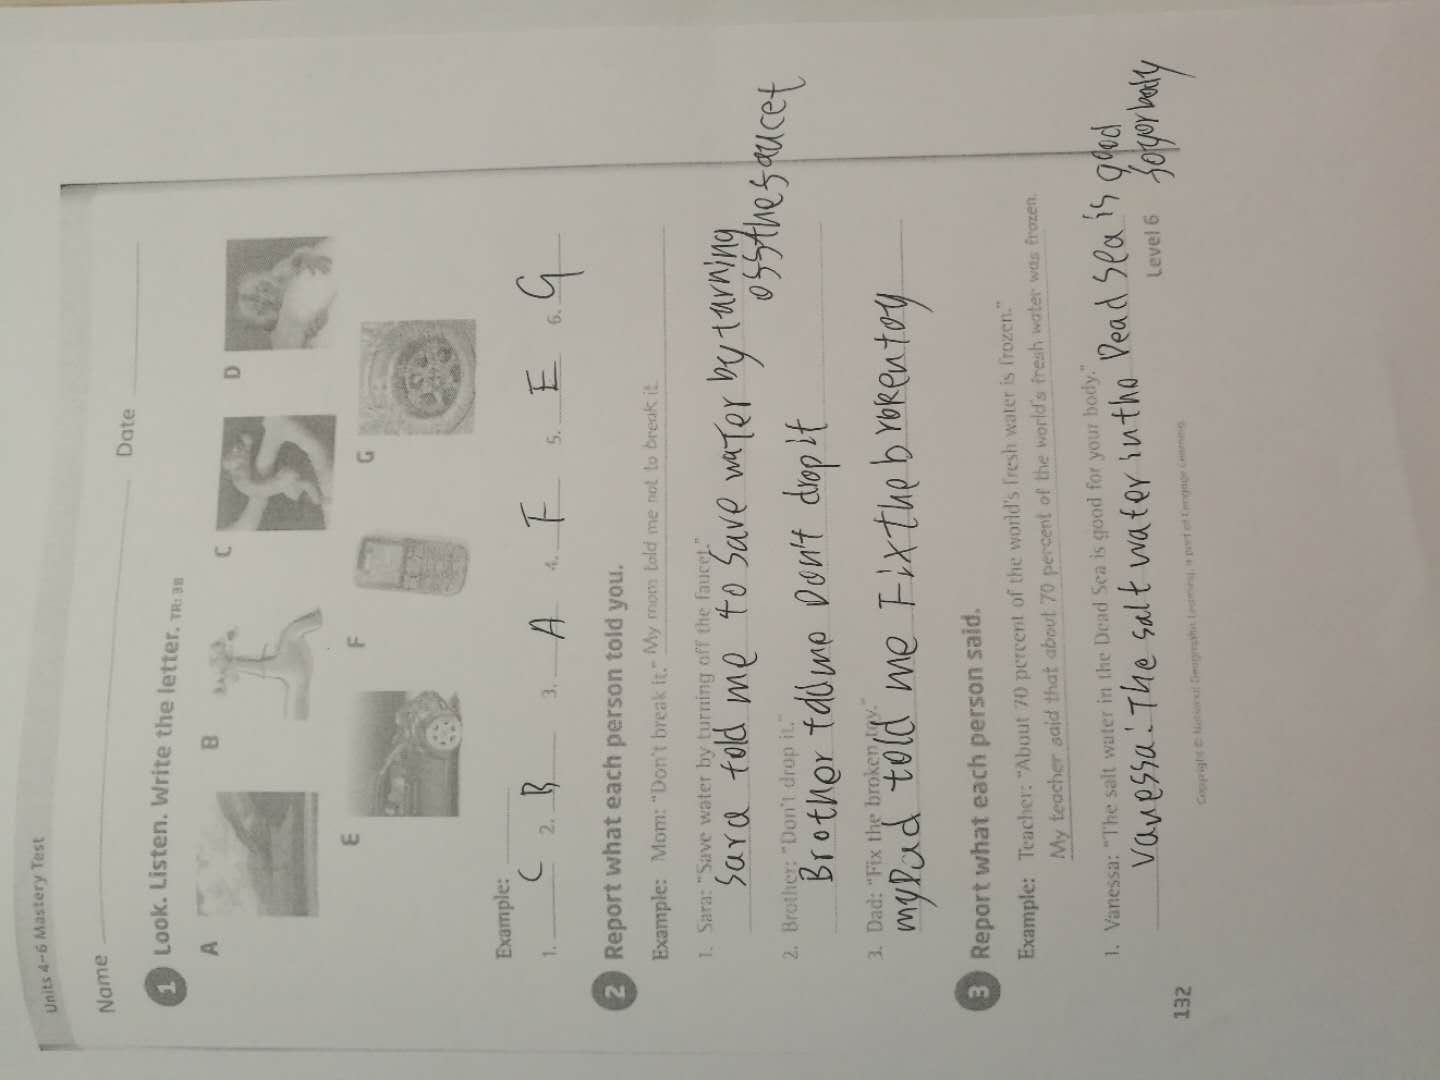 Units 4–6 Mastery Test
Name Date
1 Look. Listen. Write the letter. TR: 38
A B C D
E F G
Example:
1. C 2. B 3. A 4. F 5. E 6. G
2 Report what each person told you.
Example: Mom: "Don't break it." My mom told me not to break it.
1. Sara: "Save water by turning off the faucet."
Sara told me to save water by turning
off the faucet
2. Brother: "Don't drop it."
Brother told me Don't drop it
3. Dad: "Fix the broken toy."
my Dad told me Fix the broken toy
3 Report what each person said.
Example: Teacher: "About 70 percent of the world's fresh water is frozen."
My teacher said that about 70 percent of the world's fresh water was frozen.
1. Vanessa: "The salt water in the Dead Sea is good for your body."
Vanessa: The salt water in the Dead Sea is good
fo yor body
132 Copyright © National Geographic Learning, a part of Cengage Learning Level 6